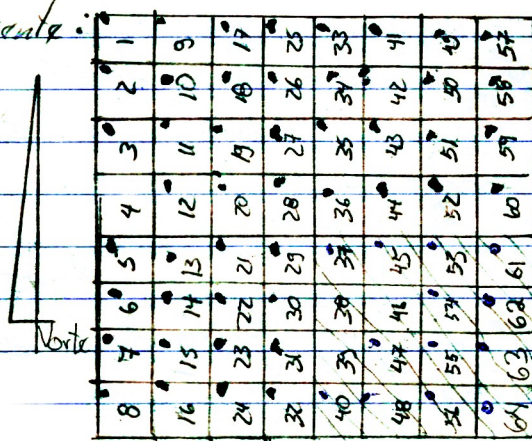 ente:
1 9 17 25 33 41 49 57
2 10 18 26 34 42 50 58
3 11 19 27 35 43 51 59
4 12 20 28 36 44 52 60
5 13 21 29 37 45 53 61
6 14 22 30 38 46 54 62
7 15 23 31 39 47 55 63
8 16 24 32 40 48 56 64
Norte